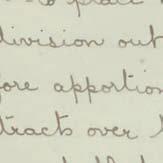 to place
division out
fore apportion
tracts over